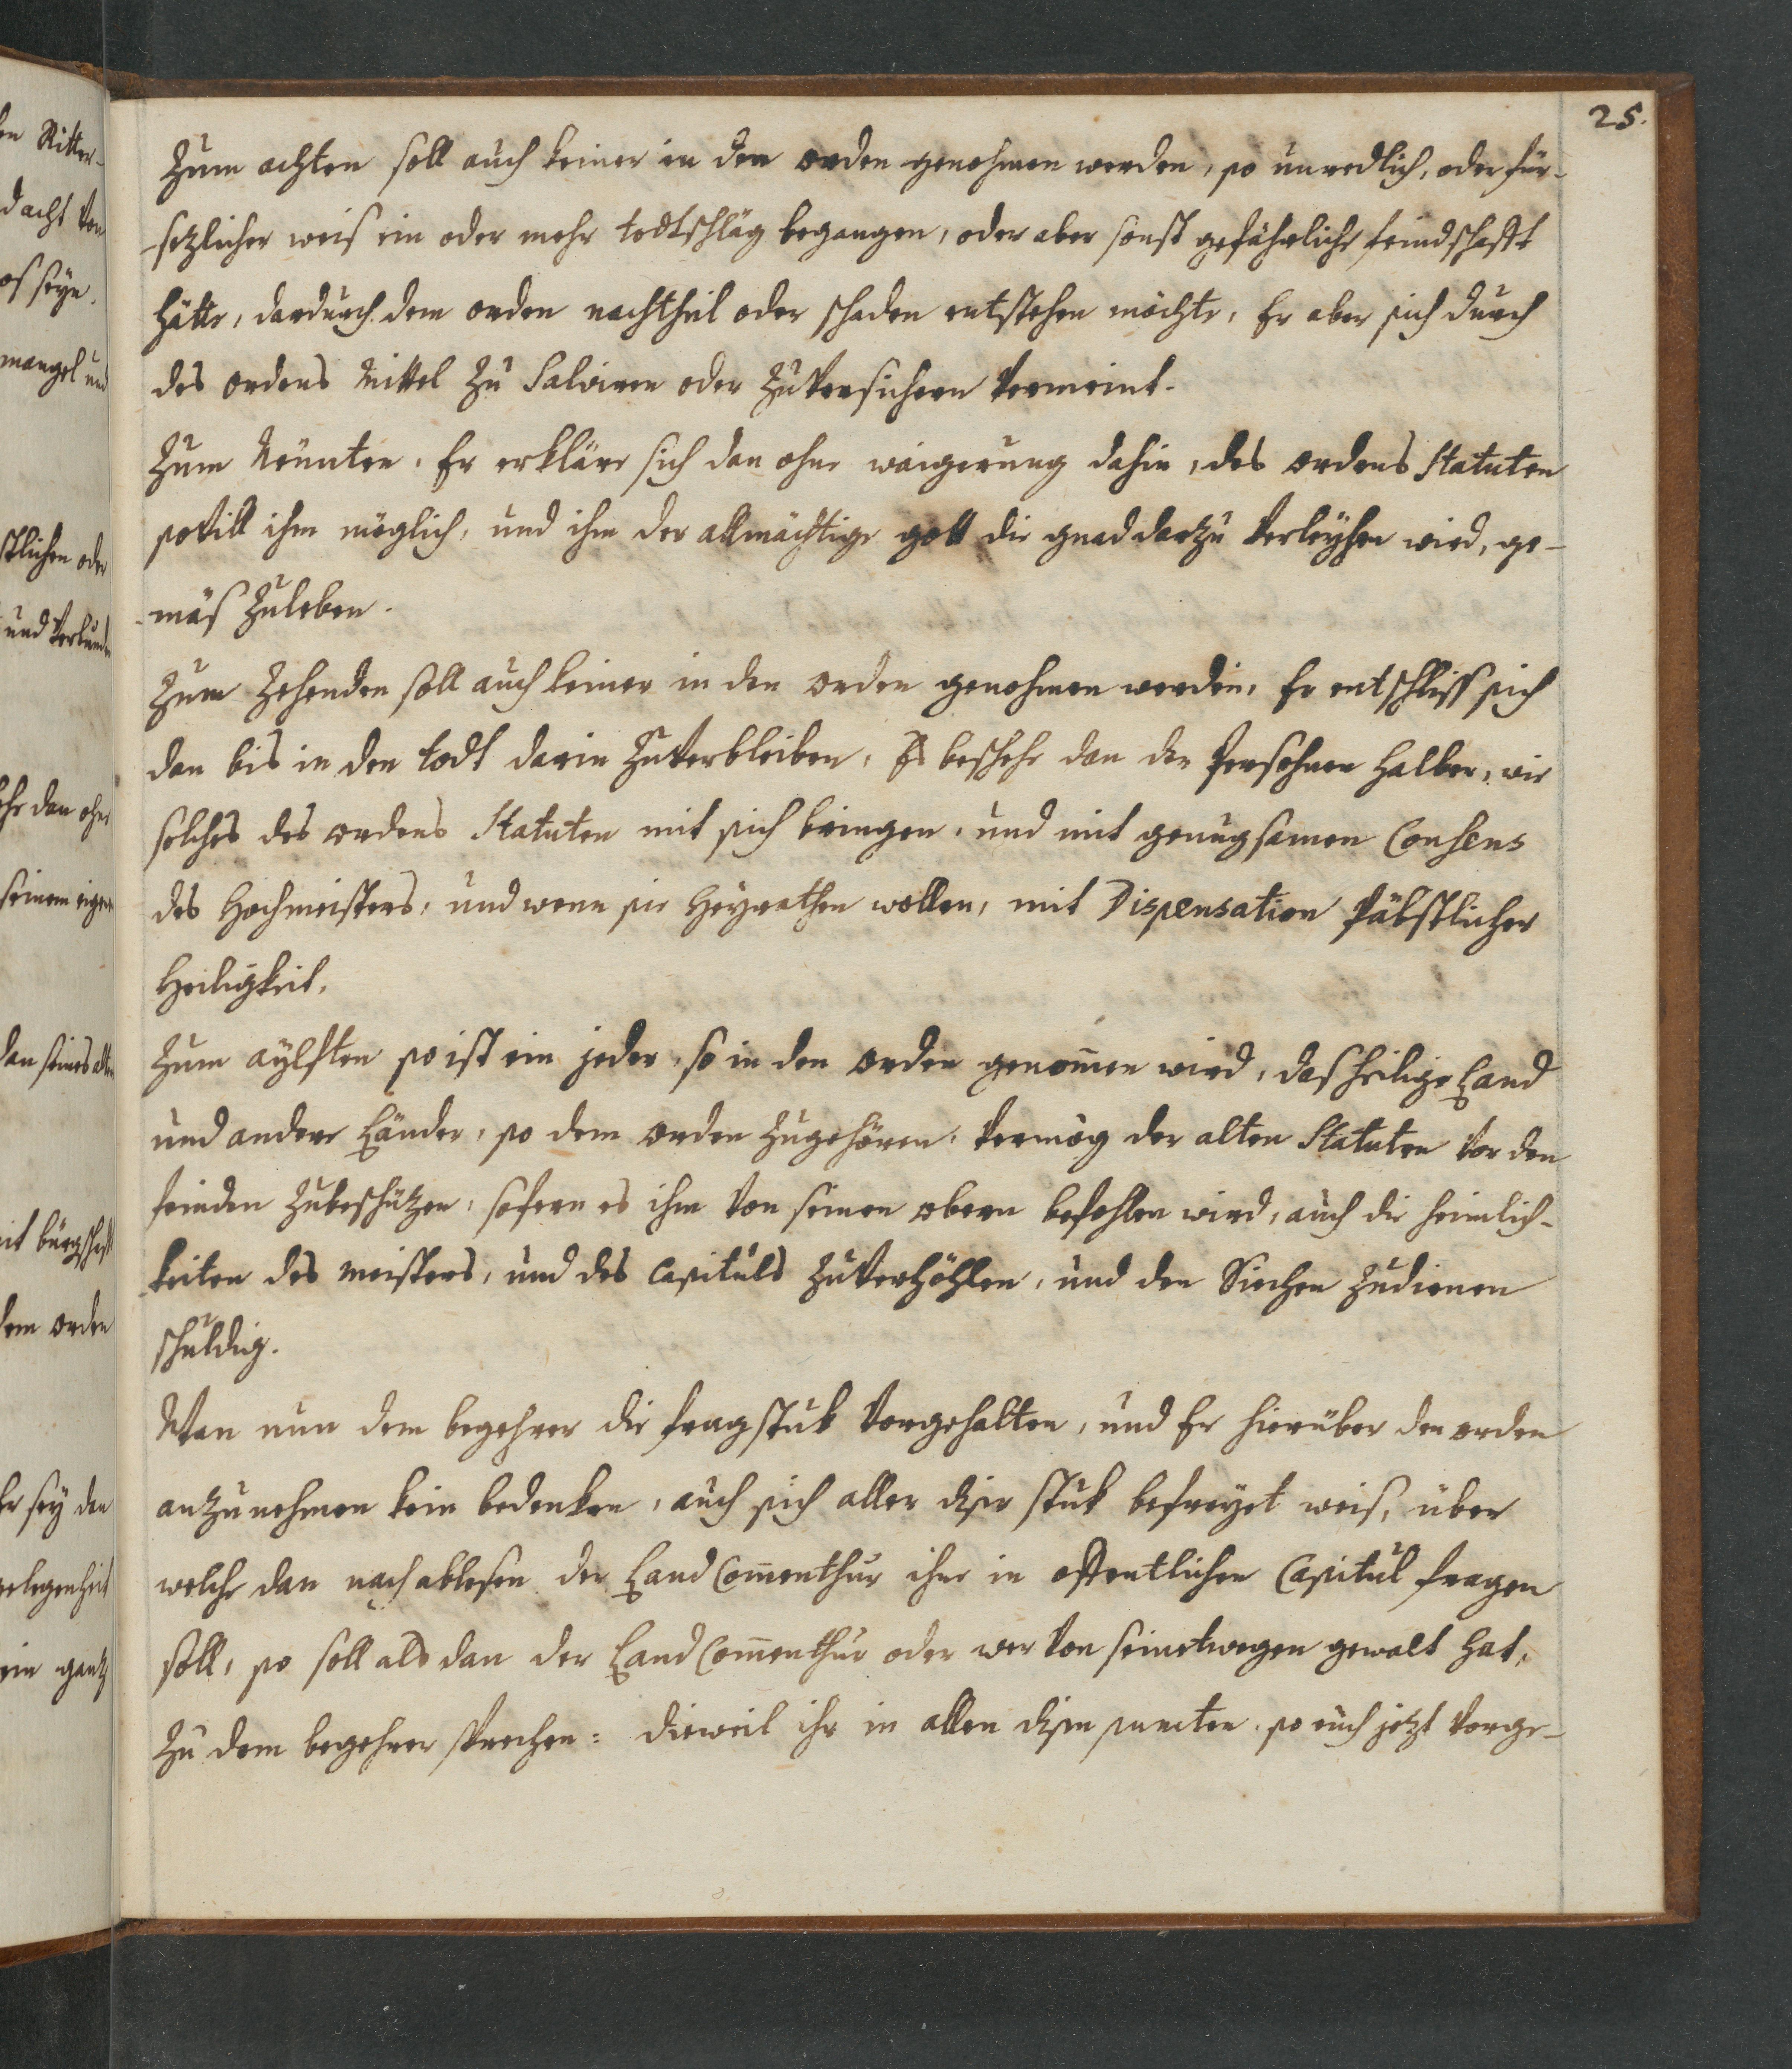 25.
Zum achten soll auch keiner in den orden genohmen werden, so unredlich, oder für-
sezlicher weis ein oder mehr todtschläg begangen, oder aber sonst gefährliche feindschafft
hätte, dardurch dem orden nachtheil oder schaden entstehen möchte, Er aber sich durch
des ordens Mittel zu Salviren oder zuversichern vermeint.
Zum Neunten. Er erkläre sich dan ohne waigerung dahin, des ordens Statuten
sovill ihm möglich, und ihm der allmächtige gott die gnad darzu verleÿhen wird, ge-
mäs zuleben.
Zum Zehenden soll auch keiner in den orden genohmen werden, Er entschliss sich
dan bis in den todt darin zuverbleiben, Es beschehe dan der Persohnen halber, wie
solches des ordens Statuten mit sich bringen, und mit genugsamen Consens
des Hochmeisters, und wenn sie Heyrathen wollen, mit Dispensation Päbstlicher
Heiligkeit.
Zum aÿlften so ist ein jeder, so in den orden genom̄en wird, das heilige Land
und andere Länder, so dem orden zugehören, vermög der alten Statuten vor den
feinden zubeschützen, sofern es ihm von seinen obern befohlen wird, auch die heimlich-
keiten des meisters, und des Capituls zuverhöhlen, und den Siechen zudienen
schuldig.
Wan nun dem begehrer die fragstuk vorgehalten, und Er hierüber den orden
anzunehmen kein bedenken, auch sich aller diser stuk befreÿet weis, über
welche dan nach ablesen der Land Com̄enthur ihne in offentlichen Capitul fragen
soll, so soll als dan der Land Com̄enthur oder wer von seinetwegen gewalt hat,
zu dem begehrer sprechen: dieweil ihr in allen disen puncten, so euch jetzt vorge-